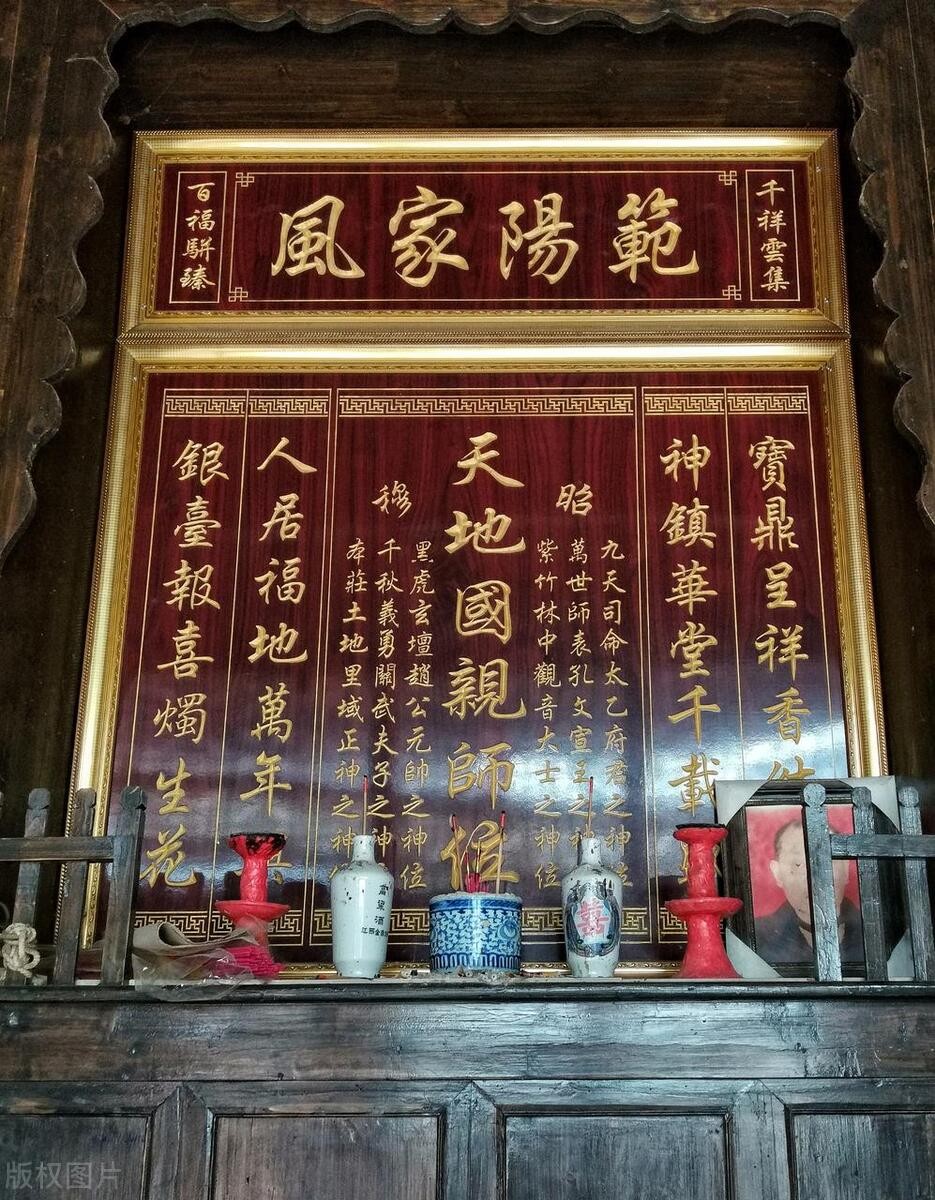 千祥雲集
範陽家風
百福駢臻
寶鼎呈祥香
神鎮華堂千載
昭
九天司命太乙府君之神位
萬世師表孔文宣王之神
紫竹林中觀音大士之神位
天地國親師位
穆
黑虎玄壇趙公元帥之神位
千秋義勇關武夫子之神
本莊土地里域正神之神
人居福地萬年
銀臺報喜燭生花
囍
版权图片